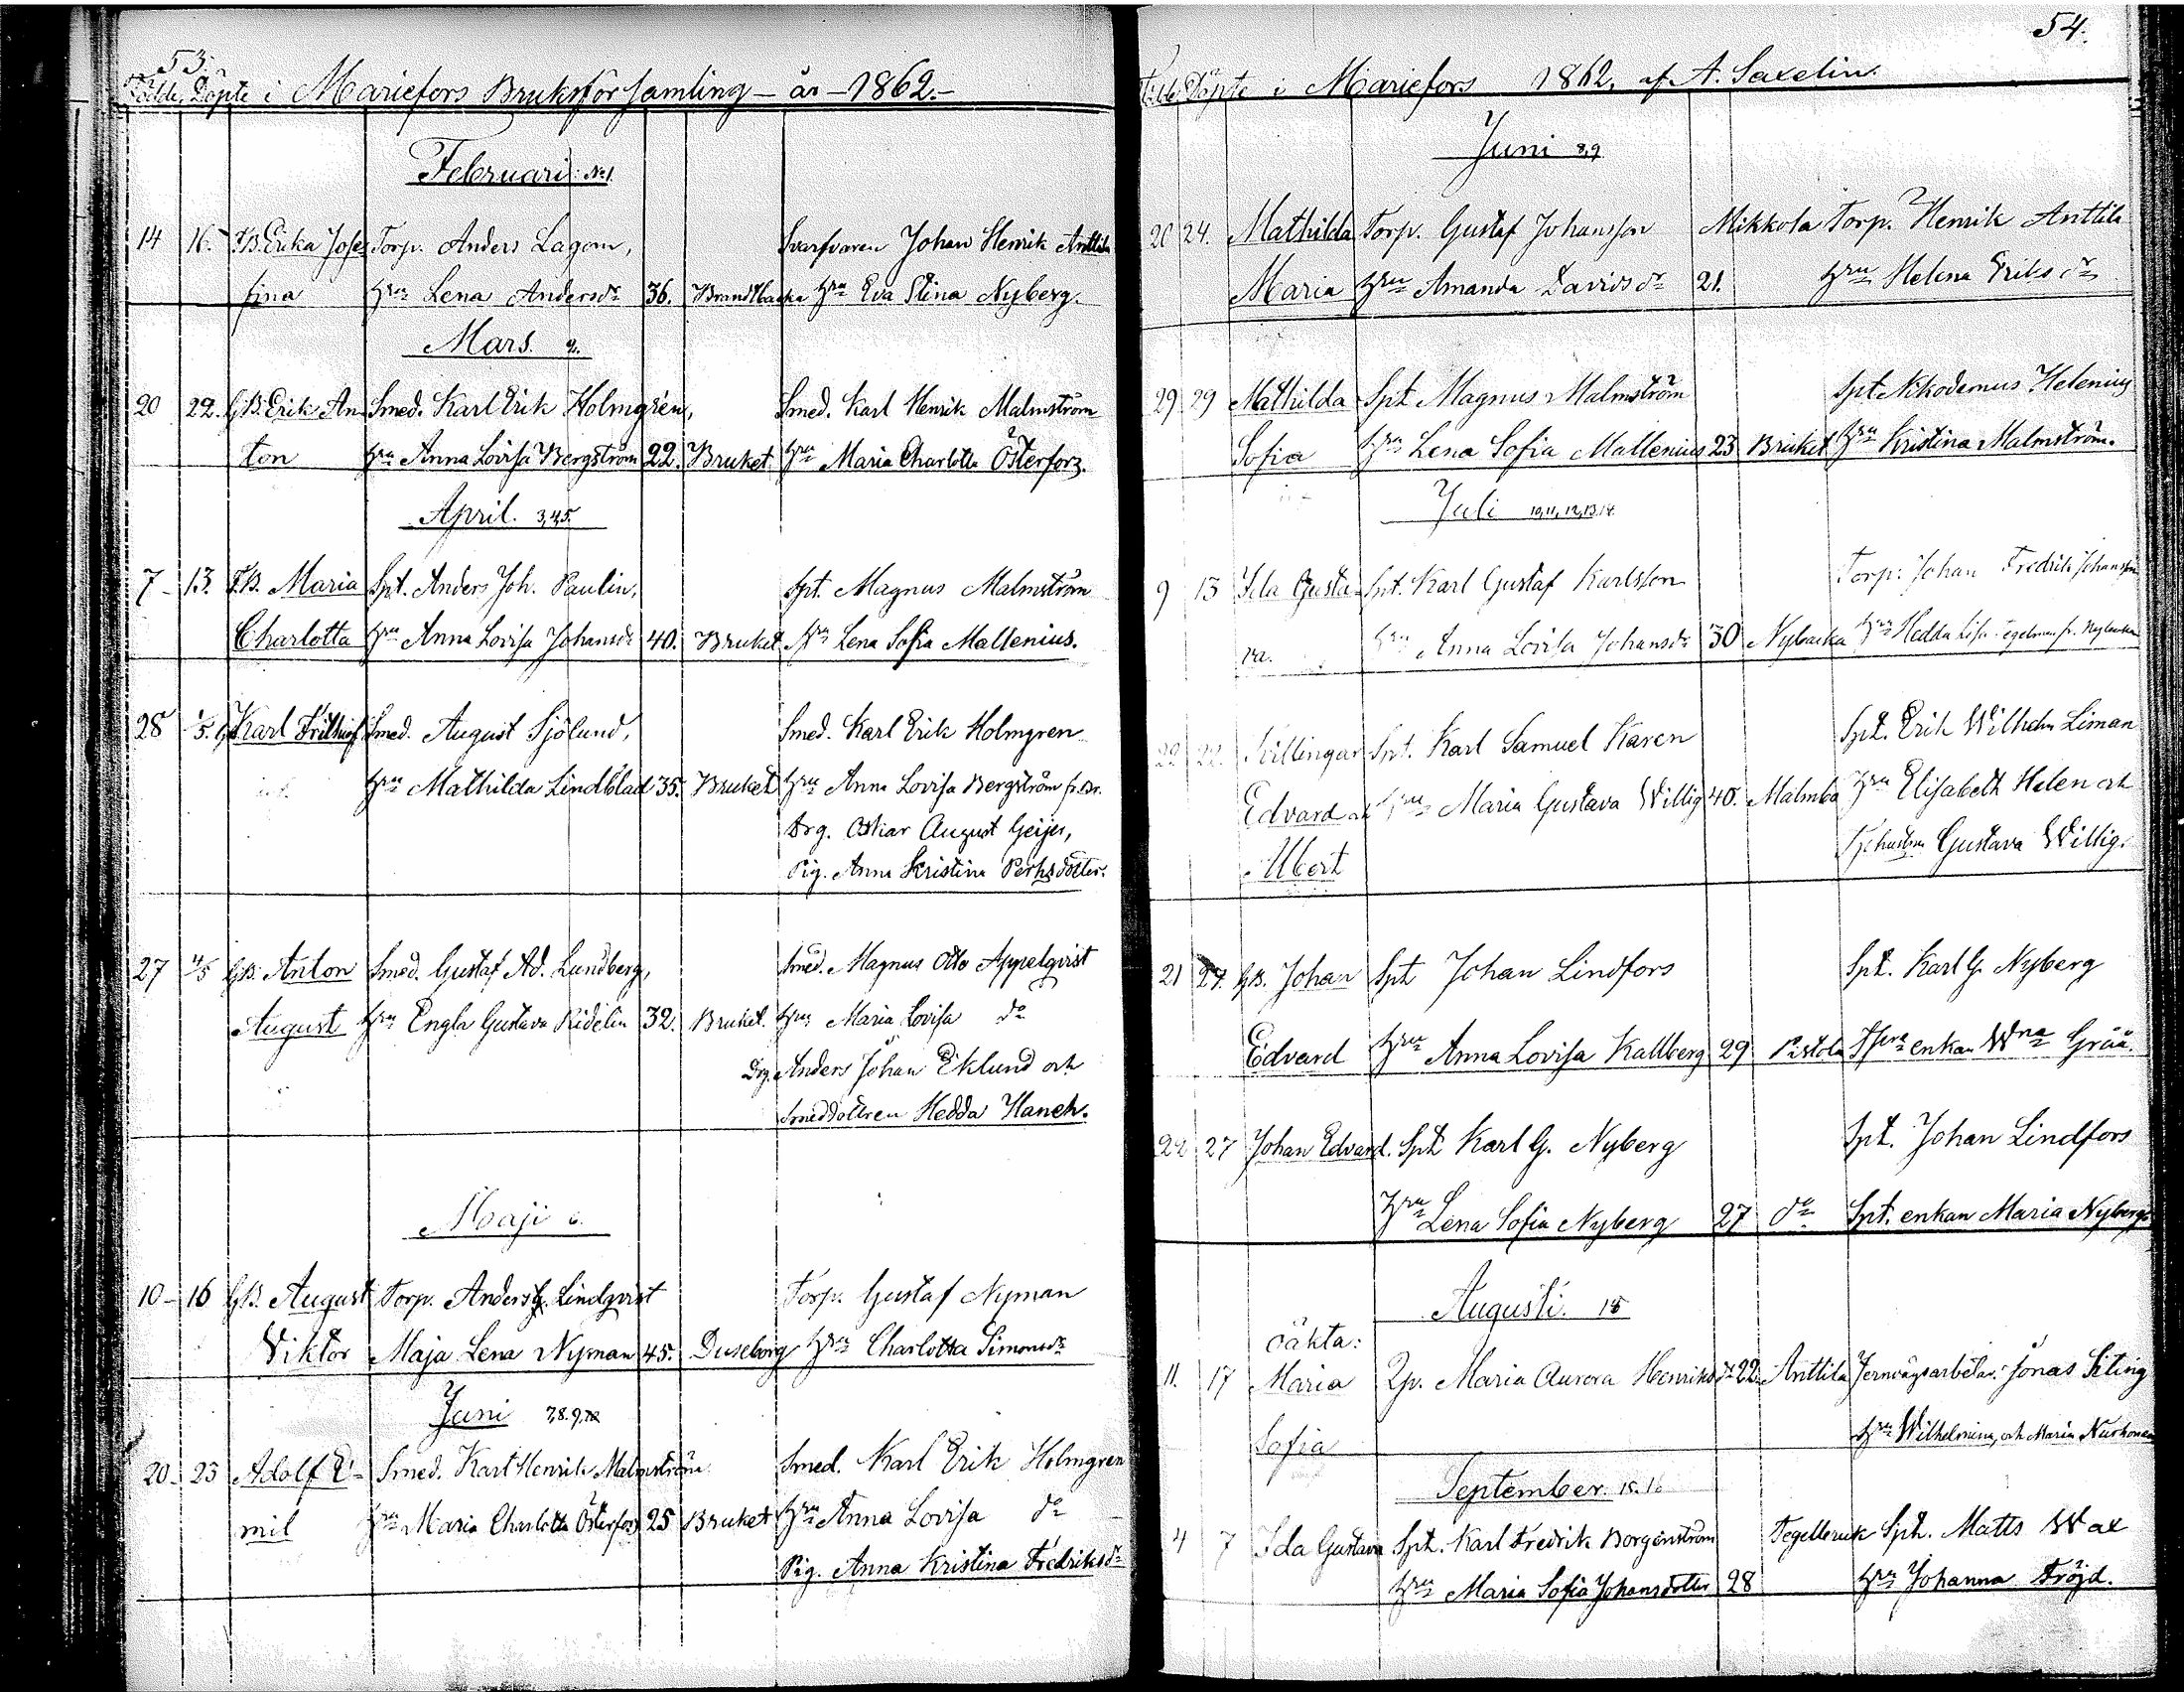 53.
Födde, Döpte i Mariefors Bruksförsamling - år - 1862.-
Februari: No 1.
14 16. F.B. Erika Jose Torp. Anders Lagom, Svarfvaren Johan Henrik Anttila
fina hru Lena Andersdr 36. Brandtbacka hru Eva Stina Nyberg.
Mars. 2.
20 22. G.B. Erik An Smed. Karl Erik Holmgrén, Smed. Karl Henrik Malmström
ton hru Anna Lovisa Bergström 22. Bruket hru Maria Charlotta Österforz.
April. 3,4,5.
7 - 13. F.B. Maria Spt. Anders Joh. Paulin, Spt. Magnus Malmström
Charlotta hru Anna Lovisa Johansdr 40. Bruket hru Lena Sofia Mallenius.
28 1/5. G Karl Frithiof Smed. August Sjölund, Smed. Karl Erik Holmgren
hru Mathilda Lindblad 35. Bruket hru Anna Lovisa Bergström fr. Br.
Drg. Oskar August Geijer,
Pig. Anna Kristina Pehrsdotter.
27 4/5 G.B. Anton Smed. Gustaf Ad. Lundberg, Smed. Magnus Otto Appelqvist
August hru Engla Gustava Ridelin 32. Bruket. hru Maria Lovisa do
Drg. Anders Johan Eklund och
Smeddottren Hedda Haneh.
Maji 6.
10 - 16 G.B. August Torp. Anders G. Lindqvist Torp. Gustaf Nyman
Viktor Maja Lena Nyman 45. Duseborg hru Charlotta Simonsdr
Juni 7,8,9,10
20. 23 Adolf E- Smed. Karl Henrik Malmström Smed. Karl Erik Holmgren
mil hru Maria Charlotta Österforz 25 Bruket hru Anna Lovisa do
Pig. Anna Kristina Fredriksdr
54.
Födde, Döpte i Mariefors 1862, af A. Saxelin.
Juni 8,9
20 24. Mathilda Torp. Gustaf Johansson Mikkola Torp. Henrik Anttila
Maria hru Amanda Davidsdr 21. hru Helena Eriksdr
29 29 Mathilda Spt Magnus Malmström Spt Nikodemus Helenius
Sofia hru Lena Sofia Mallenius 23 Bruket hru Kristina Malmström.
Juli 10,11,12,13,14.
9 13 Ida Gusta- Spt. Karl Gustaf Karlsson Torp. Johan Fredrik Johansson
va. hru Anna Lovisa Johansdr 30 Nybacka hru Hedda Lisa Tegelman fr. Nybacka
22 22 Tvillingar Spt. Karl Samuel Karen Spt. Erik Wilhelm Liman
Edvard och hru Maria Gustava Willig 40. Malmba hru Elisabeth Helen och
Albert Gustava Willig.
21 27. G.B. Johan Spt Johan Lindfors Spt. Karl G. Nyberg
Edvard hru Anna Lovisa Kallberg 29 Pistola enkan Wna Grää.
22 27 Johan Edvard. Spt Karl G. Nyberg Spt. Johan Lindfors
hru Lena Sofia Nyberg 27 do Spt. enkan Maria Nyberg
Augusti. 15
oäkta:
11. 17 Maria Qp. Maria Aurora Henriksdr 22. Anttila Jernvägsarbetar. Jonas Siting
Sofia hru Wilhelmina, och Maria Nurhonen
September. 15.16
4 7 Ida Gustava Spt. Karl Fredrik Borgenström Tegelleruk Spt. Matts Wax
hru Maria Sofia Johansdotter 28 hru Johanna Fröjd.